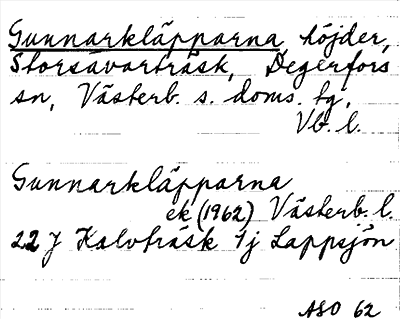 Gunnarkläpparna höjder,
Storsävarträsk, Degerfors
sn, Västerb. s. doms. tg,
Vb. l.
Gunnarkläpparna
ek (1962) Västerb. l.
22 J Kalvträsk 1j Lappsjön
ASO 62